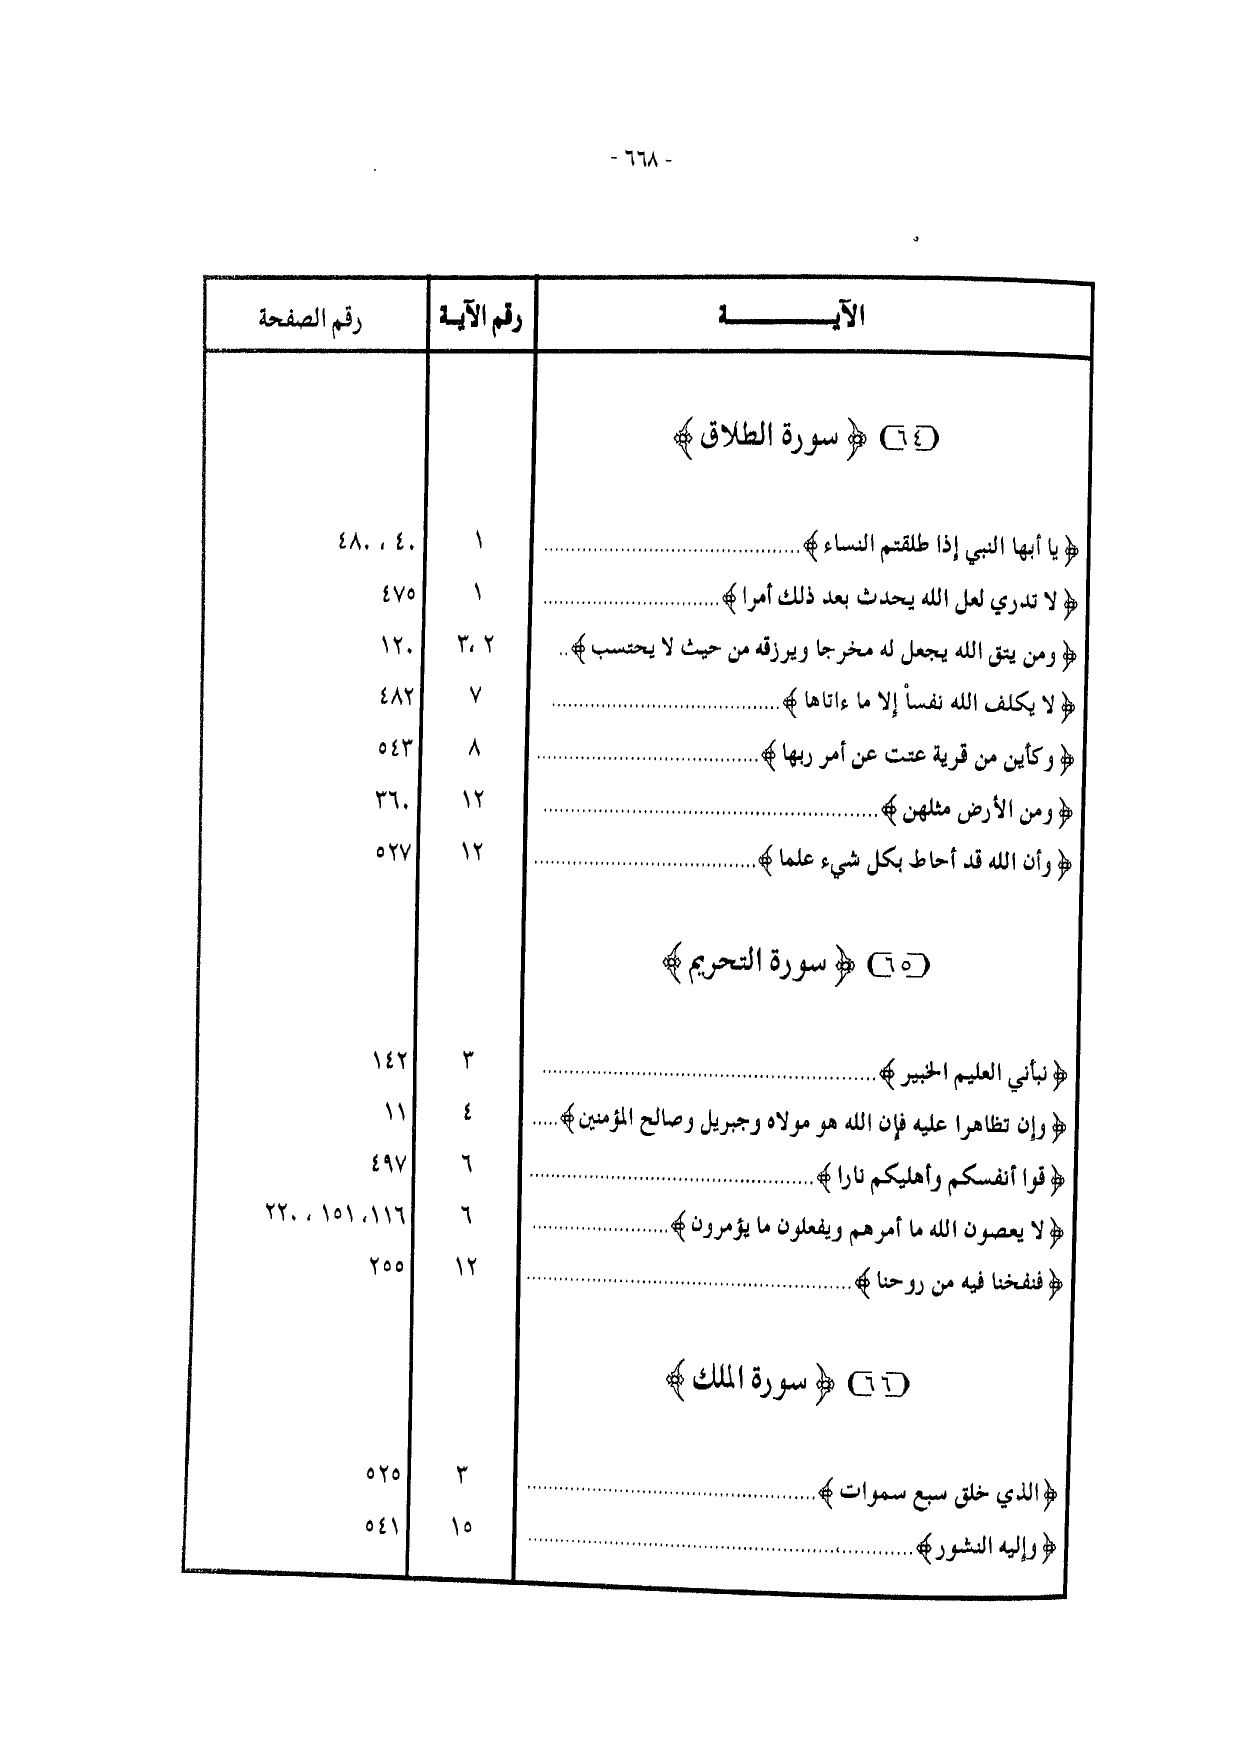 - ٦٦٨ -
الآيـــــــــــة رقم الآيـة رقم الصفحة
(٦٤) ﴿ سورة الطلاق ﴾
﴿ يا أيها النبي إذا طلقتم النساء ﴾ ........ ١ ٤٠ ، ٤٨٠
﴿ لا تدري لعل الله يحدث بعد ذلك أمرا ﴾ ........ ١ ٤٧٥
﴿ ومن يتق الله يجعل له مخرجا ويرزقه من حيث لا يحتسب ﴾ .. ٢ ،٣ ١٢٠
﴿ لا يكلف الله نفساً إلا ما ءاتاها ﴾ ........ ٧ ٤٨٢
﴿ وكأين من قرية عتت عن أمر ربها ﴾ ........ ٨ ٥٤٣
﴿ ومن الأرض مثلهن ﴾ ........ ١٢ ٣٦٠
﴿ وأن الله قد أحاط بكل شيء علما ﴾ ........ ١٢ ٥٢٧
(٦٥) ﴿ سورة التحريم ﴾
﴿ نبأني العليم الخبير ﴾ ........ ٣ ١٤٢
﴿ وإن تظاهرا عليه فإن الله هو مولاه وجبريل وصالح المؤمنين ﴾ ..... ٤ ١١
﴿ قوا أنفسكم وأهليكم نارا ﴾ ........ ٦ ٤٩٧
﴿ لا يعصون الله ما أمرهم ويفعلون ما يؤمرون ﴾ ........ ٦ ١١٦، ١٥١ ، ٢٢٠
﴿ فنفخنا فيه من روحنا ﴾ ........ ١٢ ٢٥٥
(٦٦) ﴿ سورة الملك ﴾
﴿ الذي خلق سبع سموات ﴾ ........ ٣ ٥٢٥
﴿ وإليه النشور ﴾ ........ ١٥ ٥٤١